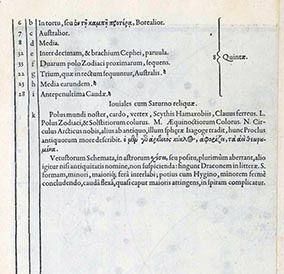 6 b In tortu, seu ἐν τῇ καμπῇ προτέρα, Borealior.
7 c Australior.
8 d Media.
32 e Inter decimam, & brachium Cephei, paruula.
33 f Duarum polo Zodiaci proximarum, sequens.
22 g Trium, quæ in rectum sequuntur, Australis.
23 h Media earundem.
28 i Antepenultima Caudæ.
8 Quintæ
Iouiales cum Saturno reliquæ.
k Polus mundi noster, cardo, vertex, Scythis Hamaxobiis, Clauus ferreus. L.
Polus Zodiaci, & Solstitiorum colurus. M. Æquinoctiorum Colurus. N. Circulus
Arcticus nobis, alius ab antiquo, illum sphæræ Isagoge tradit, hunc Proclus
antiquorum more describit. ὁ
Vetustorum Schemata, in astrorum seu positu, plurimùm aberrant, alio
igitur nisi antiquitatis nomine, non suspicienda: fingunt Draconem in litteræ S.
formam, minori, maiorisq; feræ interlabi; potius cum Hygino, minorem fermè
concludendo, caudâ flexâ, quasi caput maioris attingens, in spiram complicatur.